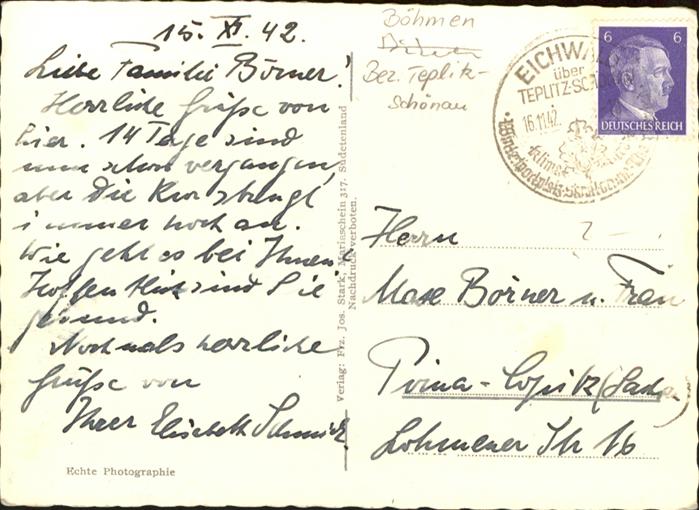 15. XI. 42.
Liebe Familie Börner!
Herrliche Grüße von
hier. 14 Tage sind
nun schon vergangen,
aber die Kur strengt
immer noch an.
Wie geht es bei Ihnen?
Hoffentlich sind Sie
gesund.
Nochmals herrliche
Grüße von
Ihrer Elisabeth Schmidt.
Echte Photographie
Verlag: Frz. Jos. Stark, Mariaschein 317. Sudetenland
Nachdruck verboten.
Böhmen
Bez. Teplitz-
Schönau
EICHWALD
über
TEPLITZ-SCHÖNAU
16.11.42
6 6
DEUTSCHES REICH
Herrn
Max Börner u. Frau
Pirna-Copitz (Sachs.)
Lohmener Str 16